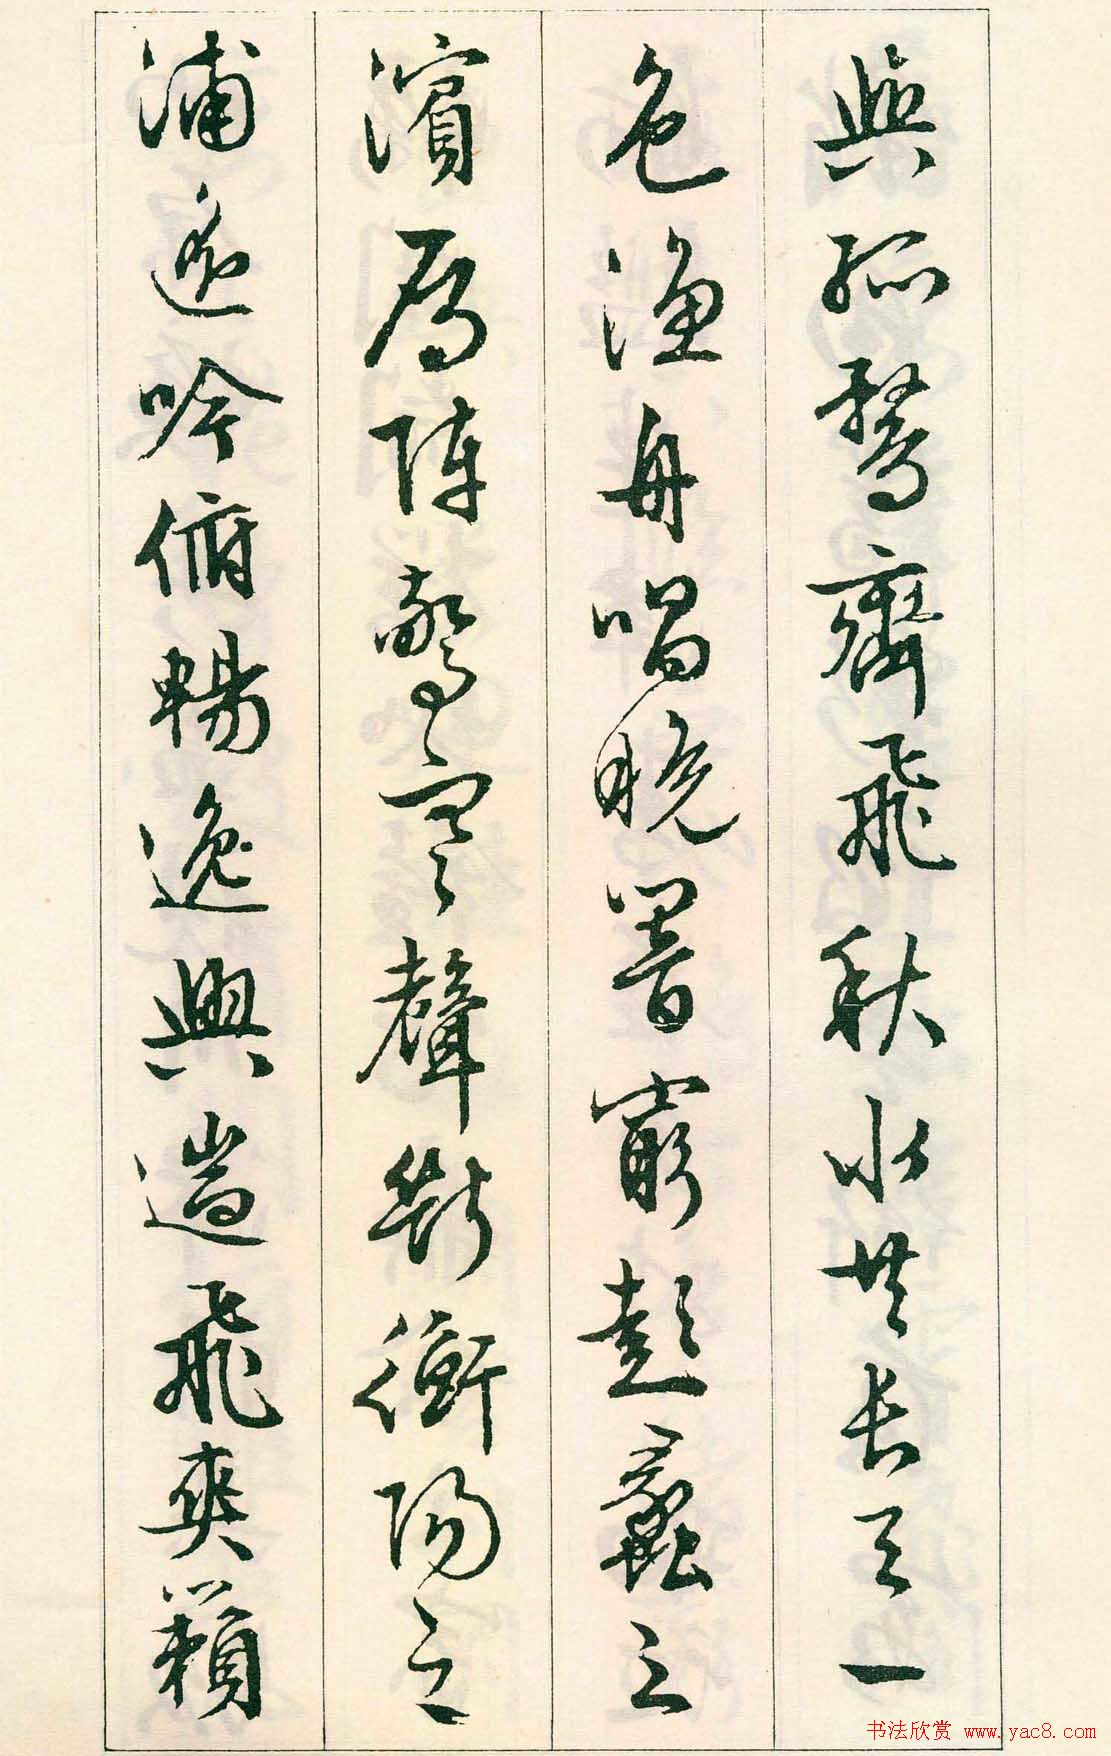 與孤鶩齊飛秋水共長天一
色漁舟唱晚響窮彭蠡之
濱雁陣驚寒聲斷衡陽之
浦遥吟俯暢逸興遄飛爽籟
书法欣赏 www.yac8.com